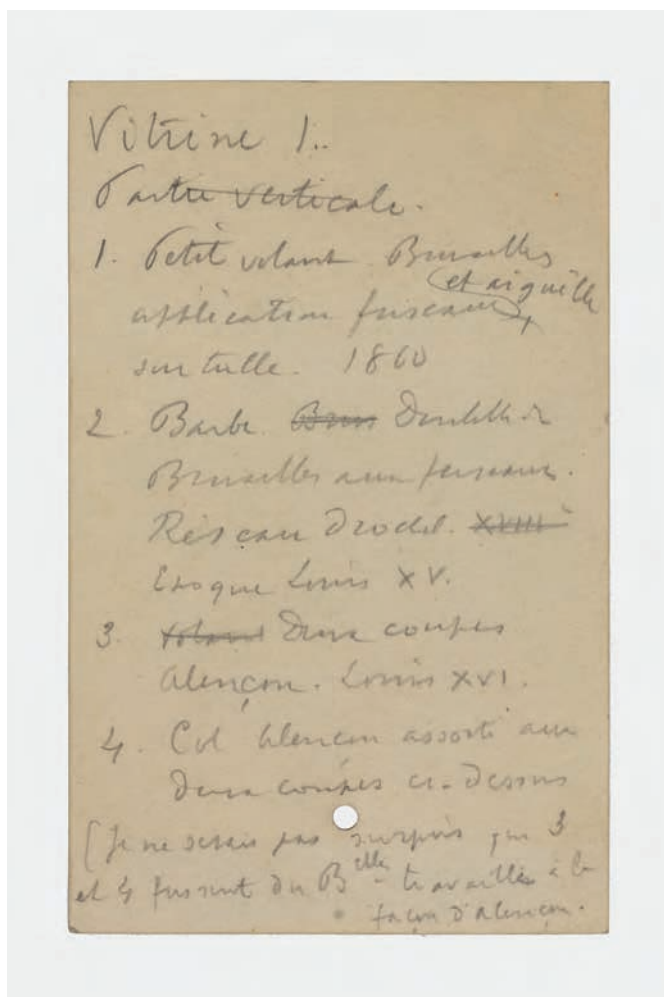 Vitrine 1.
Partie verticale.
1. Petit volant Bruxelles
et aiguille
application fuseaux
sur tulle. 1860
2. Barbe. Brux Dentelle de
Bruxelles aux fuseaux.
Réseau Drochel. XVIII
Epoque Louis XV.
3. Volant Deux coupes
Alençon. Louis XVI.
4. Col Alençon assorti aux
deux coupes ci-dessus
(Je ne serais pas surpris que 3
et 4 fussent du Belle travaillé à la
façon d'Alençon.